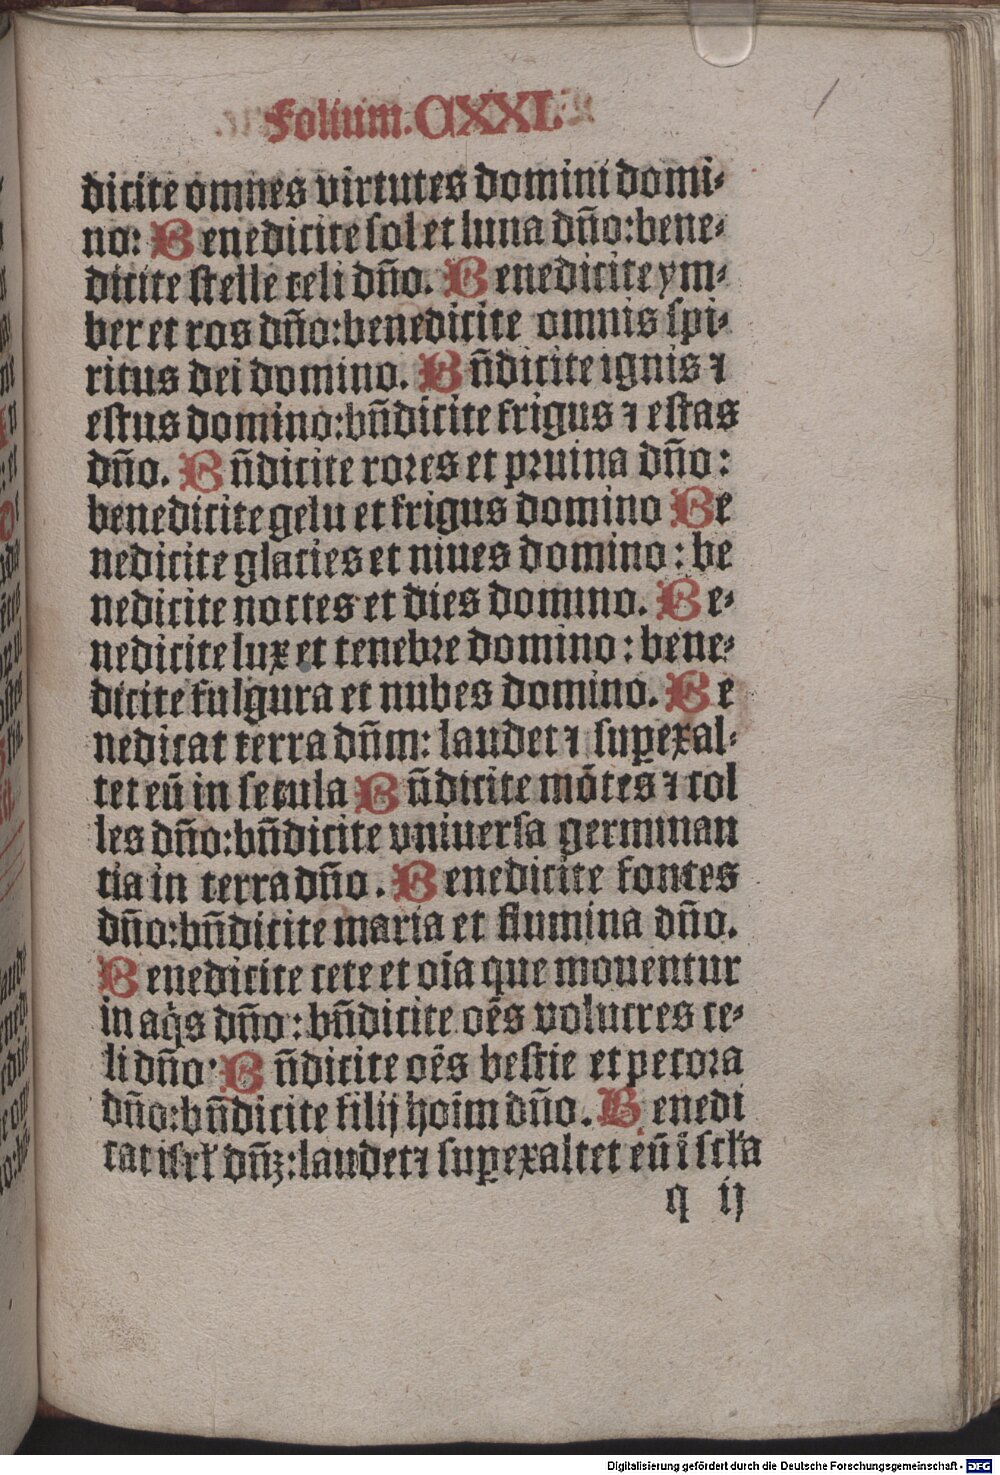 Folium. CXXI.
dicite omnes virtutes domini domi⸗
no: Benedicite sol et luna dño: bene⸗
dicite stelle celi dño. Benedicite ym⸗
ber et ros dño: benedicite omnis spi⸗
ritus dei domino. Bñdicite ignis ⁊
estus domino: bñdicite frigus ⁊ estas
dño. Bñdicite rores et pruina dño:
benedicite gelu et frigus domino Be
nedicite glacies et niues domino: be
nedicite noctes et dies domino. Be⸗
nedicite lux et tenebre domino: bene⸗
dicite fulgura et nubes domino. Be
nedicat terra dñm: laudet ⁊ suꝑexal⸗
tet eū in secula Bñdicite mōtes ⁊ col
les dño: bñdicite vniuersa germinan
tia in terra dño. Benedicite fontes
dño: bñdicite maria et flumina dño.
Benedicite cete et oīa que mouentur
in aq̄s dño: bñdicite oēs volucres ce⸗
li dño: Bñdicite oēs bestie et pecora
dño: bñdicite filij hoīm dño. Benedi
cat isrl̕ dñꝫ: laudet ⁊ suꝑexaltet eū ī scl̕a
q ij
Digitalisierung gefördert durch die Deutsche Forschungsgemeinschaft - DFG